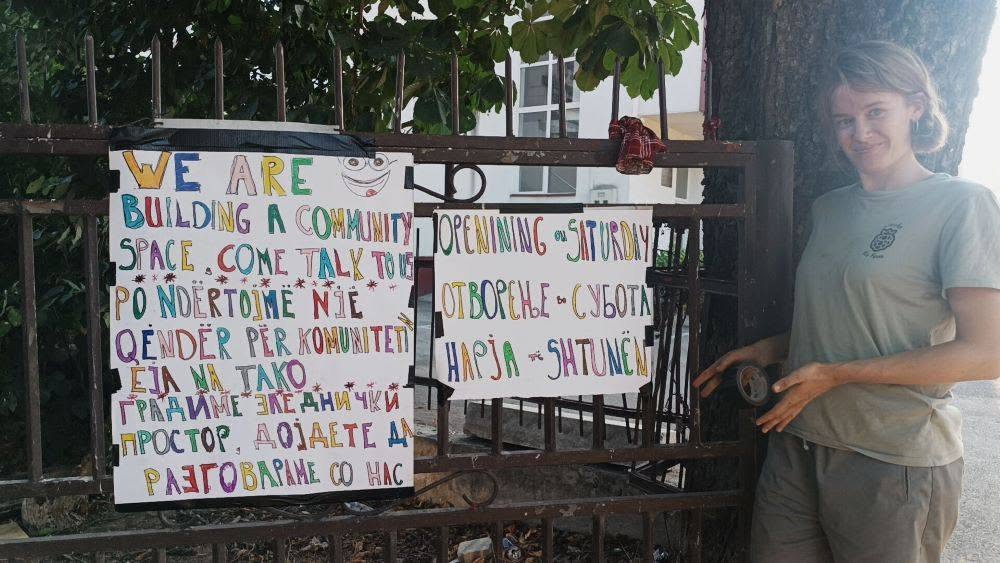 WE ARE
BUILDING A COMMUNITY
SPACE, COME TALK TO US
PO NDËRTOJMË NJË
QËNDËR PËR KOMUNITETI
EJA NA TAKO
ГРАДИМЕ ЗАЕДНИЧКИ
ПРОСТОР, ДОЈДЕТЕ ДА
РАЗГОВАРАМЕ СО НАС
OPENINING ON SATURDAY
ОТВОРЕЊЕ ВО СУБОТА
HAPJA TË SHTUNËN